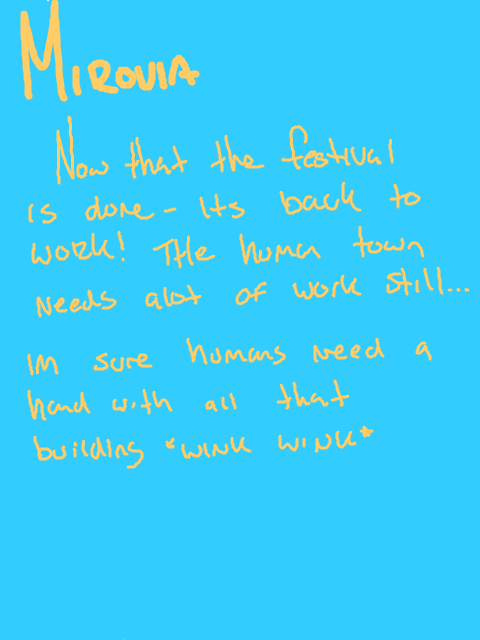 MIROVIA
Now that the festival
is done - Its back to
work! THe human town
Needs alot of work still...
IM sure humans Need a
hand with all that
building *WINK WINK*